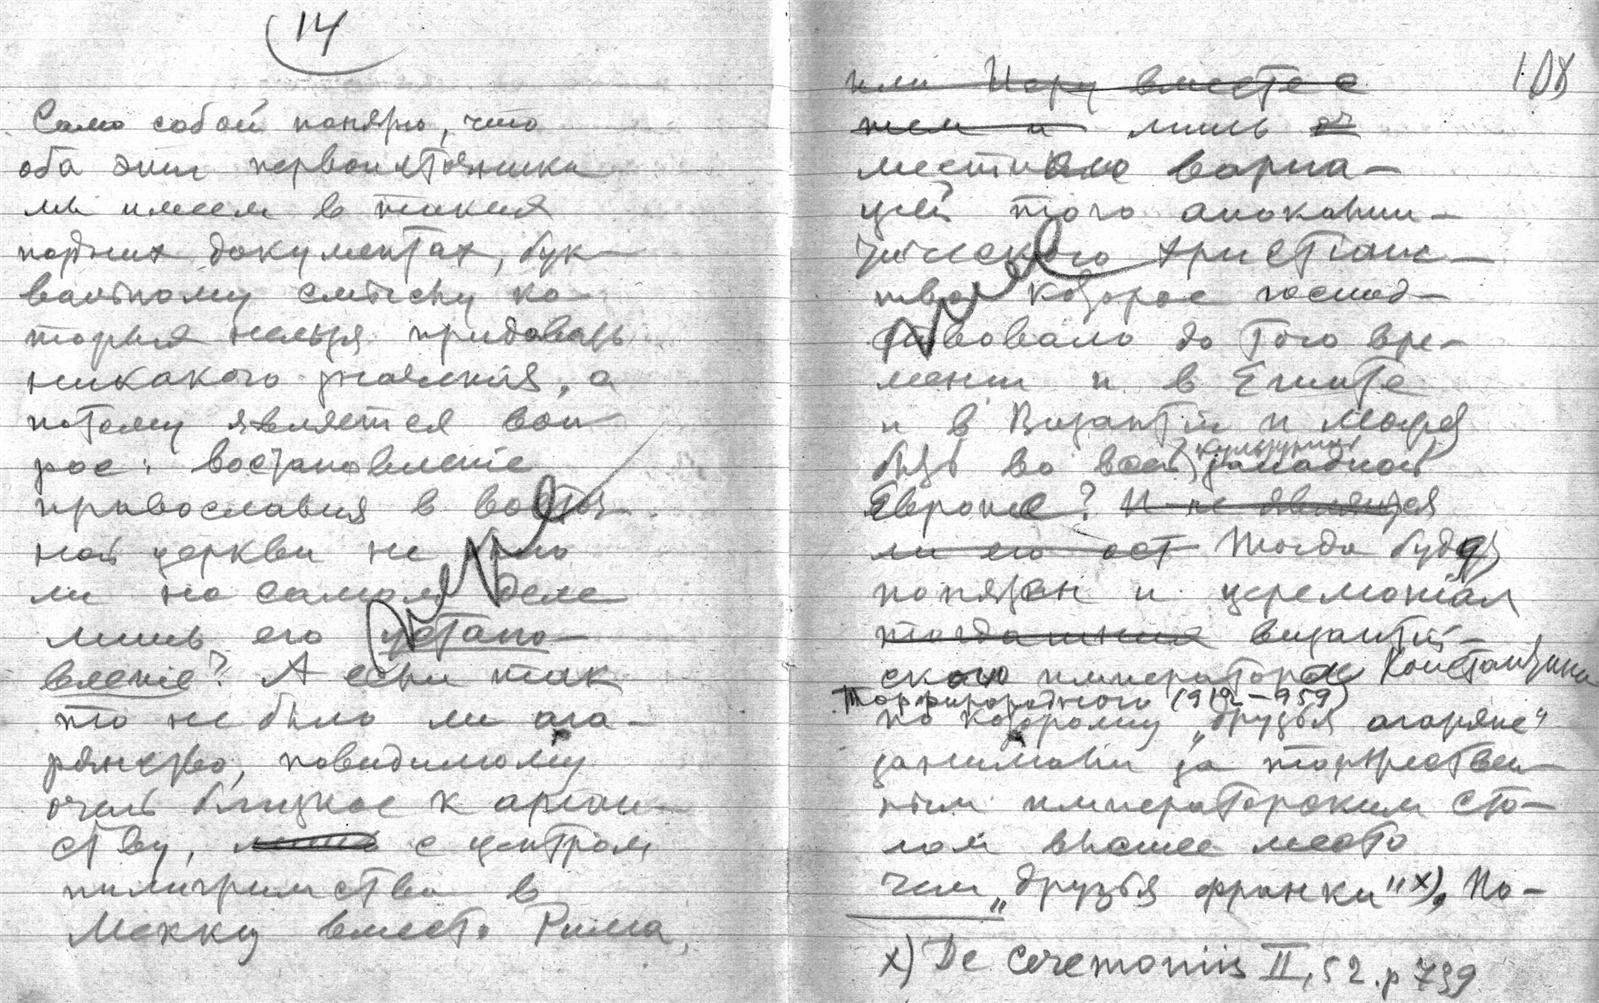 14
Само собой понятно, что
оба эти первоисточника
мы имеем в
поздних документах, бук-
вальному смыслу ко-
торых нельзя придавать
никакого значения, а
потому является воп-
рос: востановление
православия в восточ-
ной церкви не было
ли на самом деле
лишь его устано-
вленіе? А если так
то не было ли ага-
рянство, повидимому
очень близкое к ариан-
ству, с центром
пилигримства в
Мекку вместо Рима,
108
или вместе с
ним и лишь
местною вариа-
цией того апокалип-
тического христіанс-
тва которое господ-
ствовало до того вре-
мени и в Египте
и в Византіи и может
быть во всей культурной западной
Европе? И не является
ли его ост Тогда будет
понятен и церемоніал
тогдашния византій-
ского императора Константина
Порфирородного (1912-959)
по которому „друзья агаряне"
занимали за торжествен-
ным императорским сто-
лом высшее место
чем „друзья франки" х). По-
х) De Ceremoniis II, 52. p 739